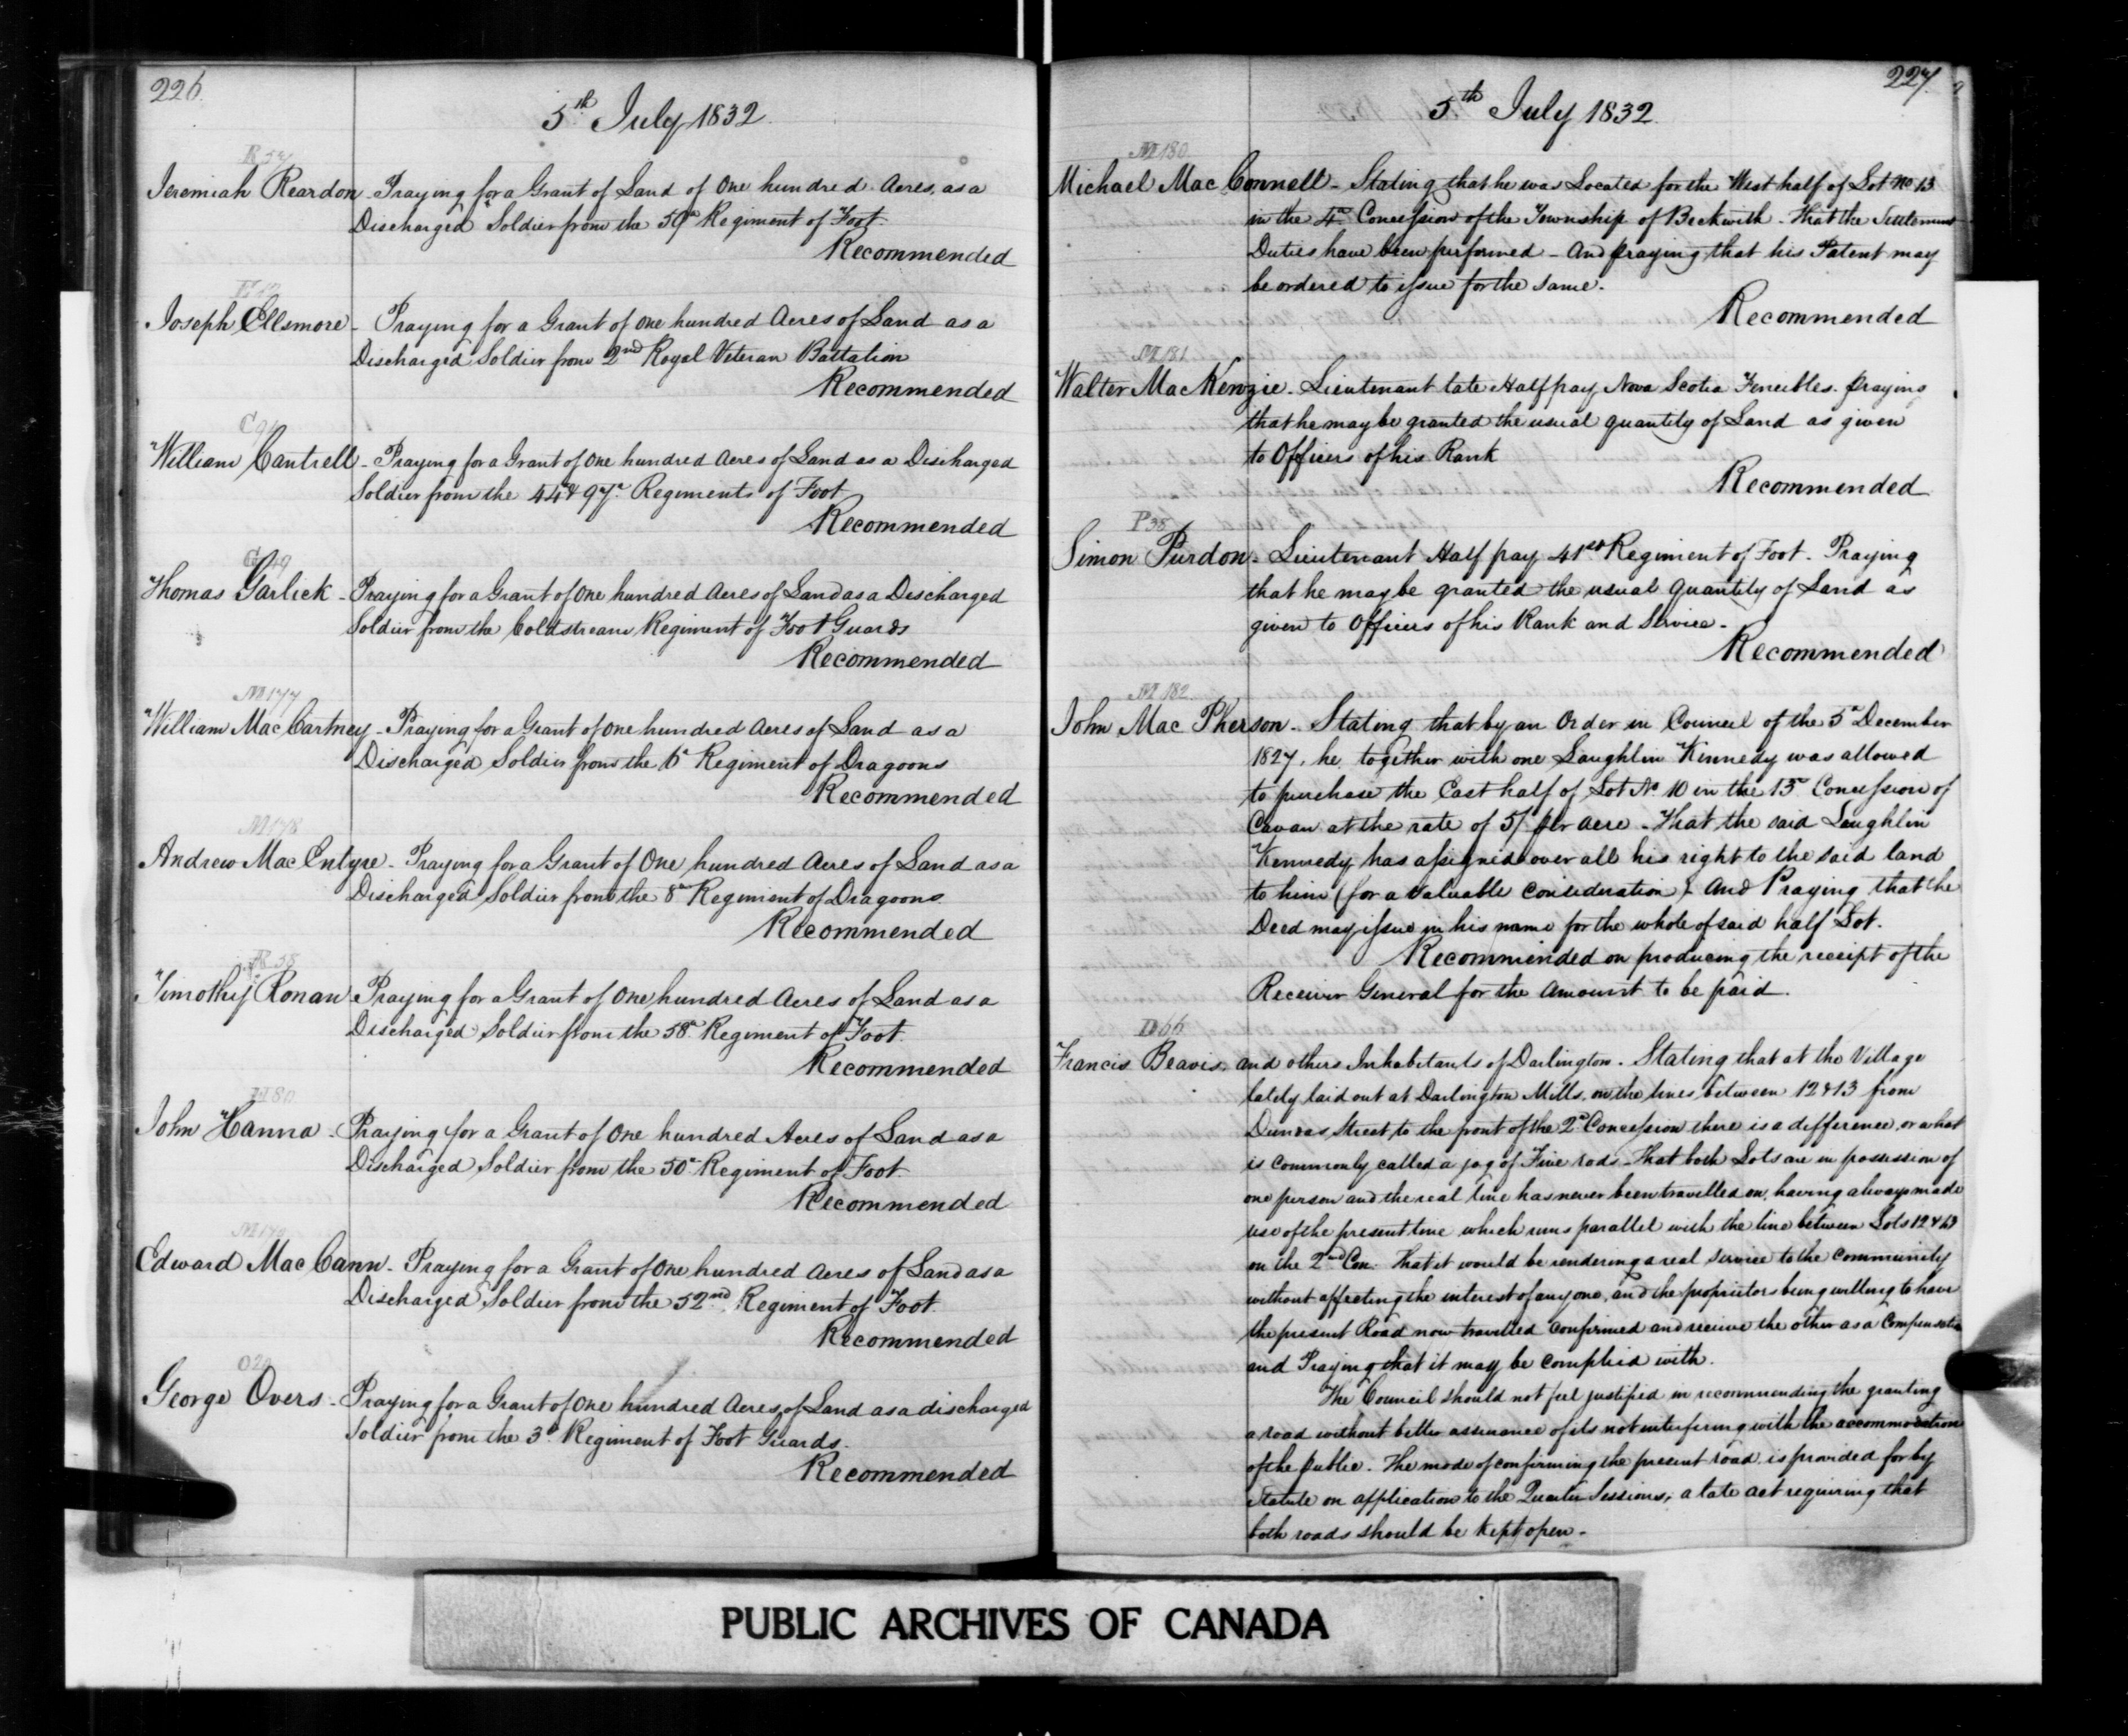 226
5th July 1832
R 57
Jeremiah Reardon - Praying for a Grant of Land of One hundred Acres, as a
Discharged Soldier from the 59th Regiment of Foot.
Recommended
Joseph Ellsmore - Praying for a Grant of one hundred Acres of Land as a
Discharged Soldier from 2nd Royal Veteran Battalion
Recommended
William Cantrell - Praying for a Grant of One hundred Acres of Land as a Discharged
Soldier from the 44th & 97th Regiments of Foot
Recommended
Thomas Garlick - Praying for a Grant of One hundred Acres of Land as a Discharged
Soldier from the Coldstream Regiment of Foot Guards
Recommended
M 177
William Mac Cartney - Praying for a Grant of One hundred Acres of Land as a
Discharged Soldier from the 6th Regiment of Dragoons
Recommended
M 178
Andrew Mac Entyre - Praying for a Grant of One hundred Acres of Land as a
Discharged Soldier from the 8th Regiment of Dragoons
Recommended
R 58
Timothy Ronan - Praying for a Grant of One hundred Acres of Land as a
Discharged Soldier from the 58th Regiment of Foot.
Recommended
H 80
John Hanna - Praying for a Grant of One hundred Acres of Land as a
Discharged Soldier from the 50th Regiment of Foot.
Recommended
M 179
Edward Mac Cann - Praying for a Grant of One hundred Acres of Land as a
Discharged Soldier from the 52nd Regiment of Foot
Recommended
George Overs - Praying for a Grant of One hundred Acres of Land as a discharged
Soldier from the 3d Regiment of Foot Guards.
Recommended
227
5th July 1832
M 180
Michael Mac Connell - Stating that he was Located for the West half of Lot No 13
in the 4th Concession of the Township of Beckwith - That the Settlement
Duties have been performed - And praying that his Patent may
be ordered to issue for the same.
Recommended
M 181
Walter Mac Kenzie - Lieutenant late Half pay Nova Scotia Fencibles. Praying
that he may be granted the usual quantity of Land as given
to Officers of his Rank
Recommended
P 38
Simon Purdon - Lieutenant Half pay 41st Regiment of Foot - Praying
that he may be granted the usual Quantity of Land as
given to Officers of his Rank and Service -
Recommended
M 182
John Mac Pherson - Stating that by an Order in Council of the 5th December
1827, he, together with one Laughlin Kennedy was allowed
to purchase the East half of Lot No 10 in the 13th Concession of
Cavan at the rate of 5/ per acre - That the said Laughlin
Kennedy has assigned over all his right to the said land
to him (for a valuable consideration) - And Praying that the
Deed may issue in his name for the whole of said half Lot.
Recommended on producing the receipt of the
Receiver General for the Amount to be paid.
D 66
Francis Beavis and others Inhabitants of Darlington - Stating that at the Village
lately laid out at Darlington Mills, on the lines between 12 & 13 from
Dundas Street to the front of the 2d Concession there is a difference, or what
is commonly called a jog of Five rods - That both Lots are in possession of
one person and the real line has never been travelled on, having always made
use of the present line which runs parallel with the line between Lots 12 & 13
on the 2nd Con. That it would be rendering a real service to the community
without affecting the interest of any one, and the proprietors being willing to have
the present Road now travelled confirmed and receive the other as a Compensation
and Praying that it may be complied with.
The Council should not feel justified in recommending the granting
a road without better assurance of its not interfering with the accommodation
of the public. The mode of confirming the present road is provided for by
Statute on application to the Quarter Sessions, a late act requiring that
both roads should be kept open -
PUBLIC ARCHIVES OF CANADA